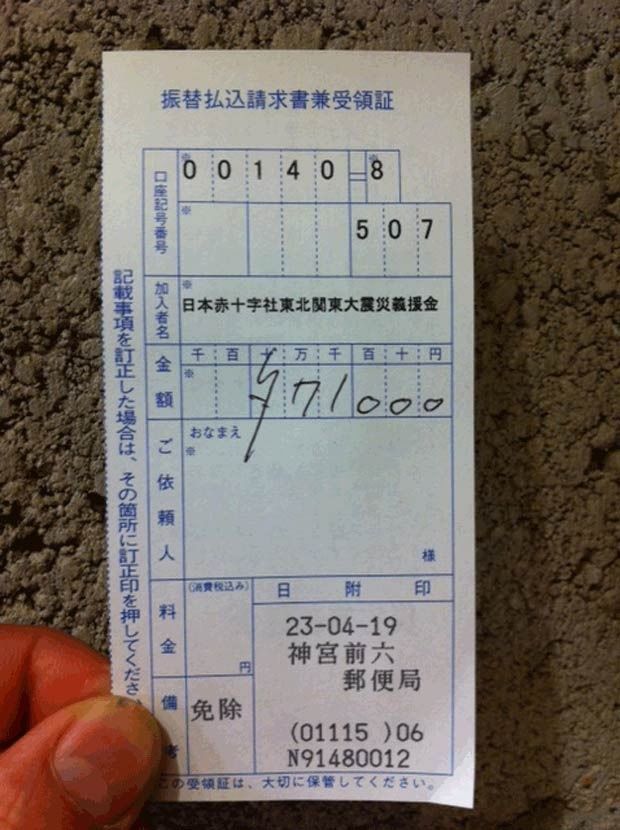 振替払込請求書兼受領証
口座記号番号
※ 00140-※8
※ 507
加入者名
※
日本赤十字社東北関東大震災義援金
金額
千 百 十 万 千 百 十 円
※ ¥71000
ご依頼人
おなまえ
※
様
料金
(消費税込み)
円
日 附 印
23-04-19
神宮前六
郵便局
(01115 )06
N91480012
備考
免除
記載事項を訂正した場合は、その箇所に訂正印を押してください。
この受領証は、大切に保管してください。